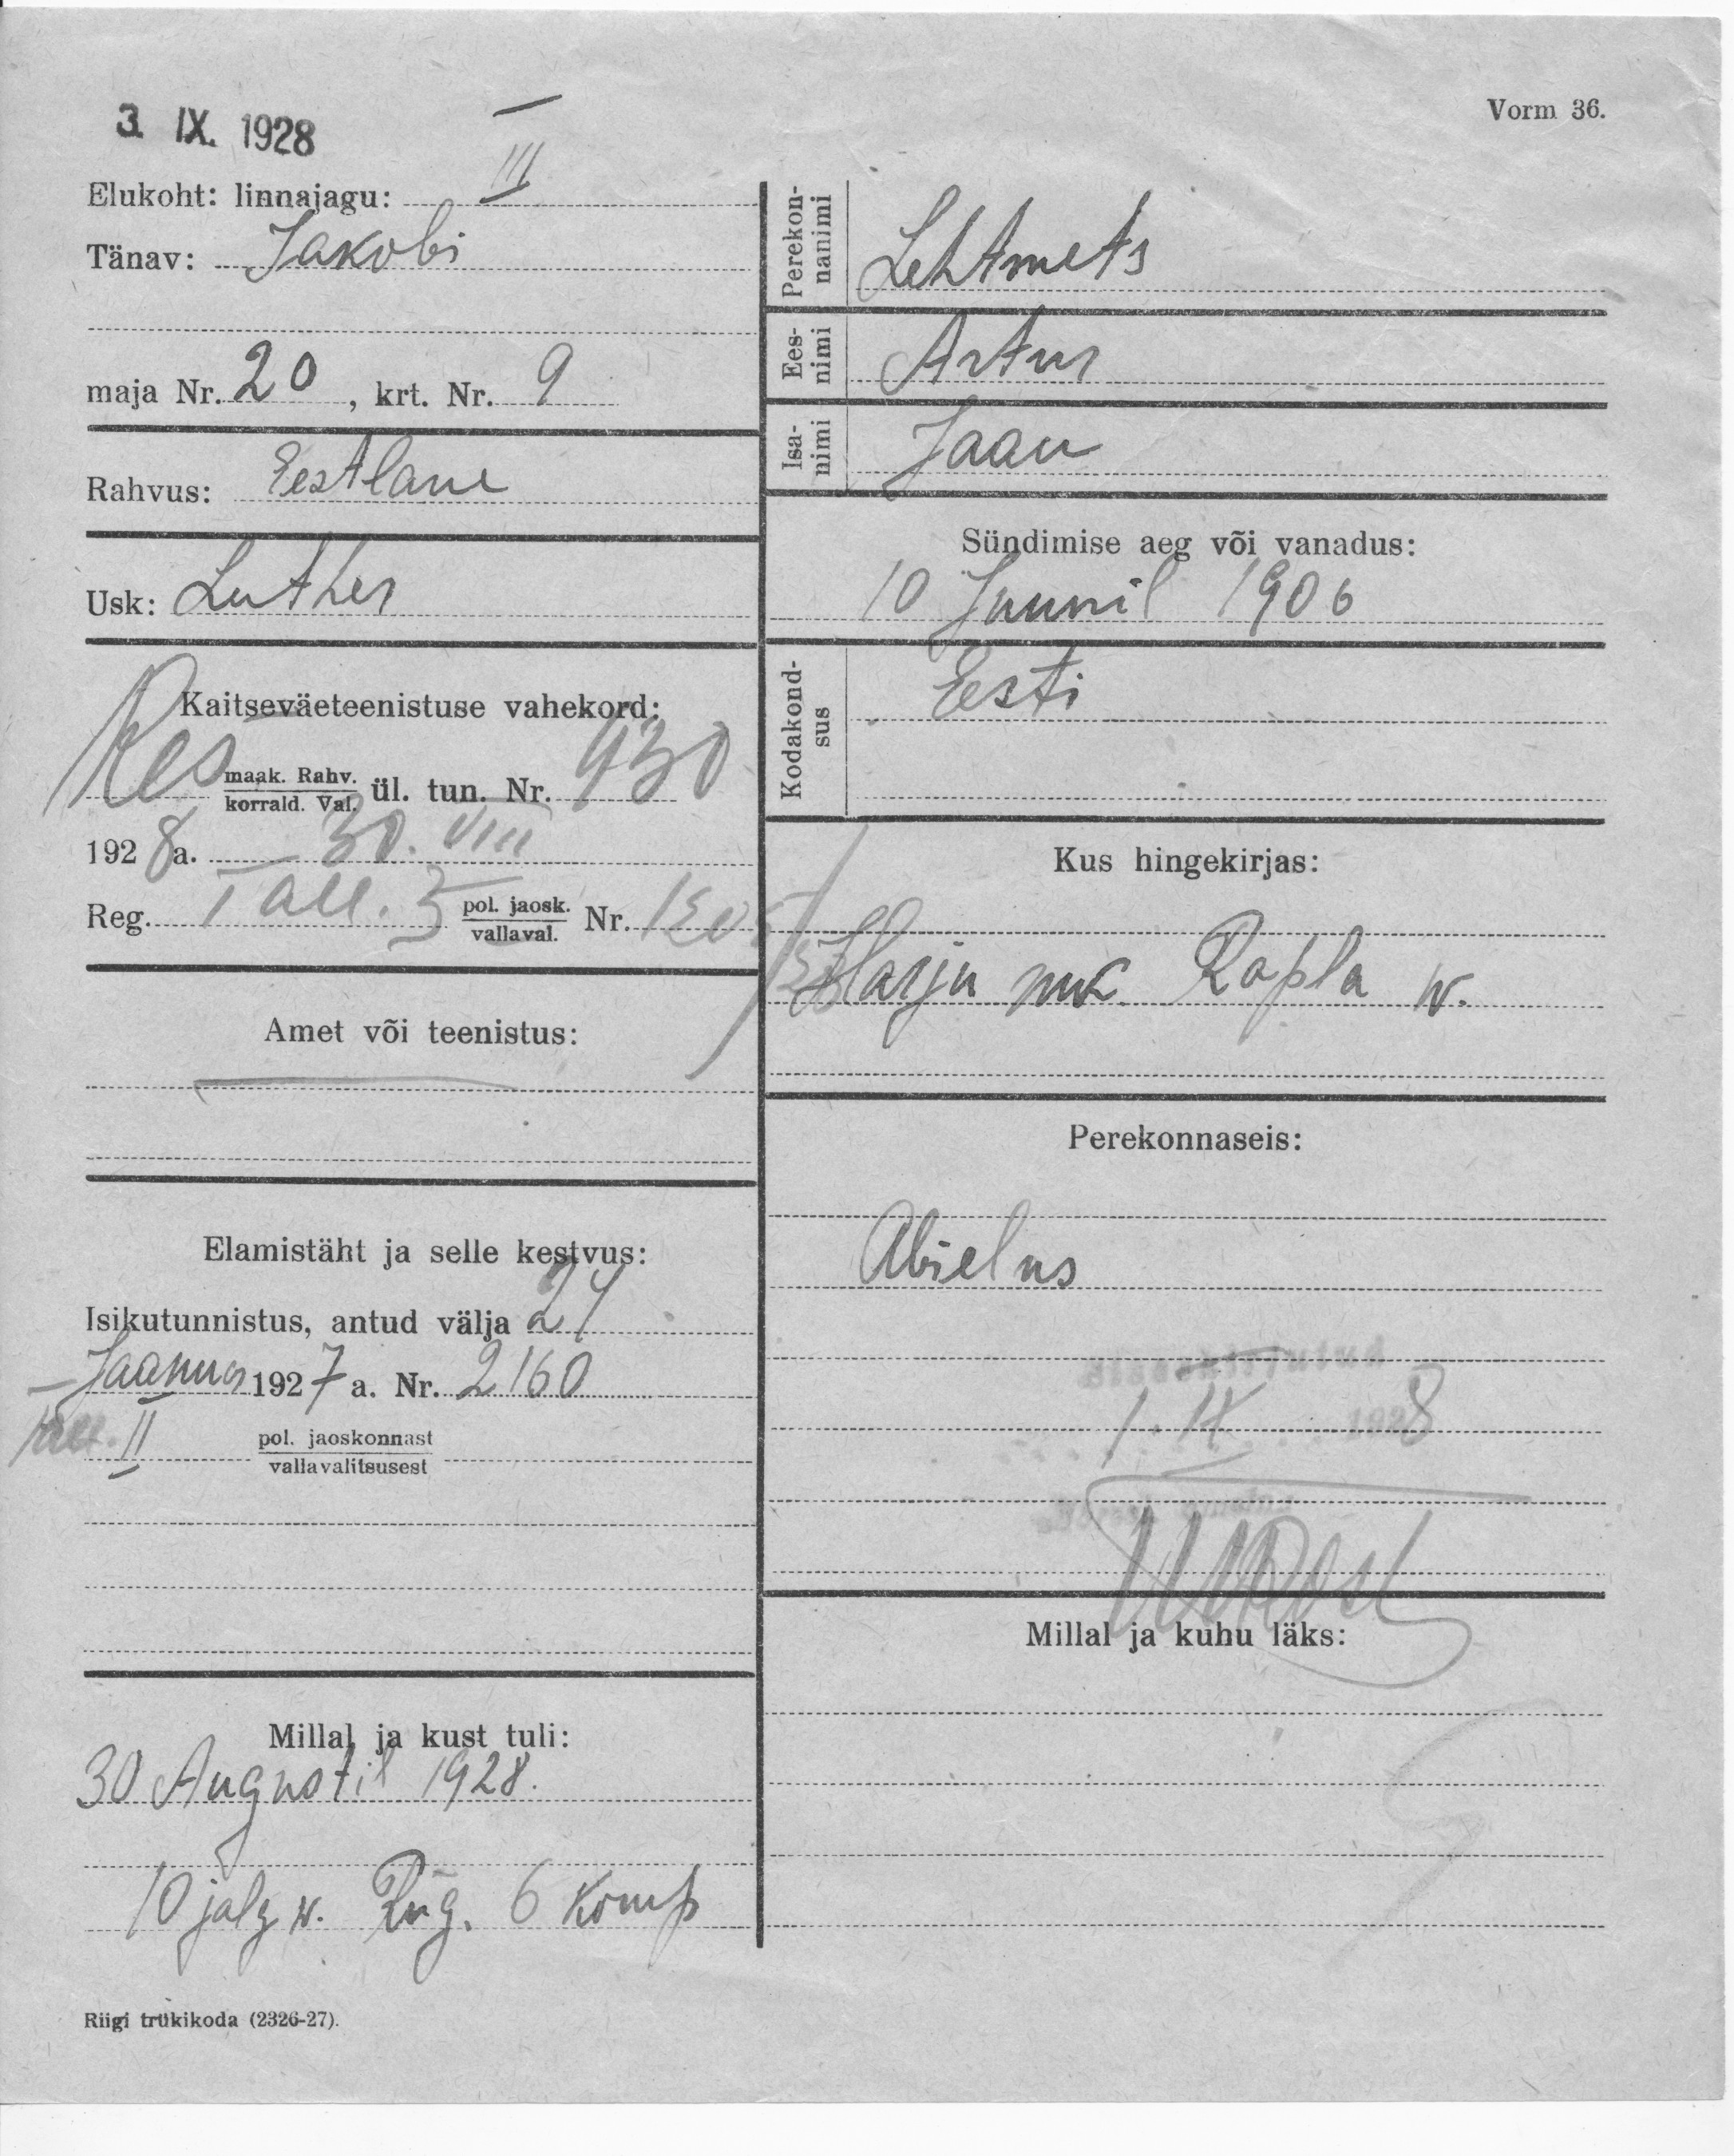 3. IX. 1928
Vorm 36.
Elukoht: linnajagu: III
Tänav: Jakobi
maja Nr. 20, krt. Nr. 9
Rahvus: Eestlane
Usk: Luther
Kaitseväeteenistuse vahekord:
Res maak. Rahv. korrald. Val. ül. tun. Nr. 930
1928 a. 30. VIII
Reg. Tall. 3 pol. jaosk. vallaval. Nr.
Amet või teenistus:
Elamistäht ja selle kestvus:
Isikutunnistus, antud välja 24
Jaanuar 1927 a. Nr. 2160
Tall. II pol. jaoskonnast vallavalitsusest
Millal ja kust tuli:
30 Augustil 1928.
10 jalg w. Rüg. 6 Komp
Riigi trükikoda (2326-27).
Perekon-
nanimi
Lehtmets
Ees-
nimi
Artur
Isa-
nimi
Jaan
Sündimise aeg või vanadus:
10 Juunil 1906
Kodakond-
sus
Eesti
Kus hingekirjas:
Harju mk. Rapla w.
Perekonnaseis:
Abielus
1. IX 1928
Millal ja kuhu läks: